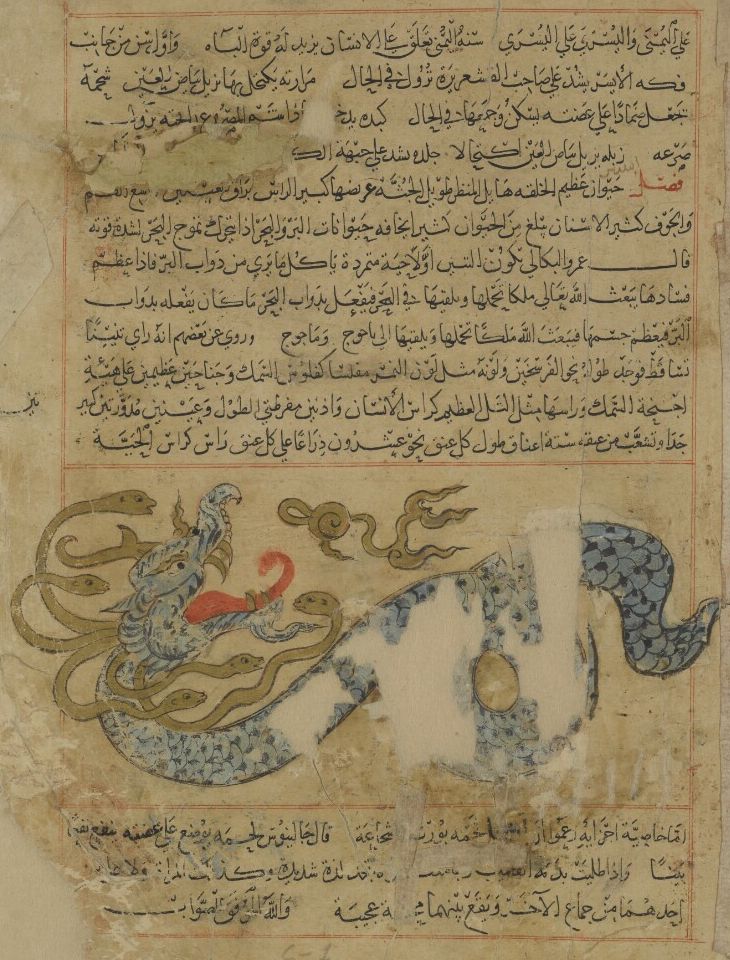 علي اليمنى واليسرى علي اليسرى سنه اليمني تعلق علي الانسان يزيد له قوة الباه واول سن من جانب
فكه الأيسر يشد علي صاحب القشعريرة تزول في الحال مرارته يكتحل بها تزيل بياض العين شحمه
تجعل ضمادا علي عضته يسكن وجعها في الحال كبده
صرعه زبله يزيل بياض العين اكتحالا جلده يشد علي جبهة
فصل حيوان عظيم الخلقه هايل المنظر طويل الجثه عريضها كبير الراس براق العينين واسع الفم
والجوف كثير الاسنان يبلع من الحيوان كثيرا يخافه حيوانات البر والبحر اذا تحرك تموج البحر لشدة قوته
قال عمرو البكالي يكون التنين اولا حية متمردة ياكل ما يري من دواب البر فاذا عظم
فسادها يبعث الله تعالي ملكا يحملها ويلقيها في البحر فيفعل بدواب البحر ما كان يفعله بدواب
البر فيعظم جسمها فيبعث الله ملكا يحملها ويلقيها الي ياجوج وماجوج وروي عن بعضهم انه راي تنينا
تساقط فوجد طوله نحو الفرسخين ولونه مثل لون النمر مفلسا كفلوس السمك وجناحين عظيمين علي هيئة
اجنحة السمك وراسها مثل التل العظيم كراس الانسان واذنين مفرطتي الطول وعينين مدورتين كبير
جدا وتشعب من عنقه ستة اعناق طول كل عنق نحو عشرون ذراعا علي كل عنق راس كراس الحية
اما خاصية اجزايه زعموا ان لحمه يورث شجاعة قال جالينوس لحمه يوضع علي عضته ينفع نفعا
بينا واذا طليت بدمه لذة شديدة وكذلك المراة
احدهما من جماع الآخر ويقع بينهما محبة عجيبة والله الموفق للصواب